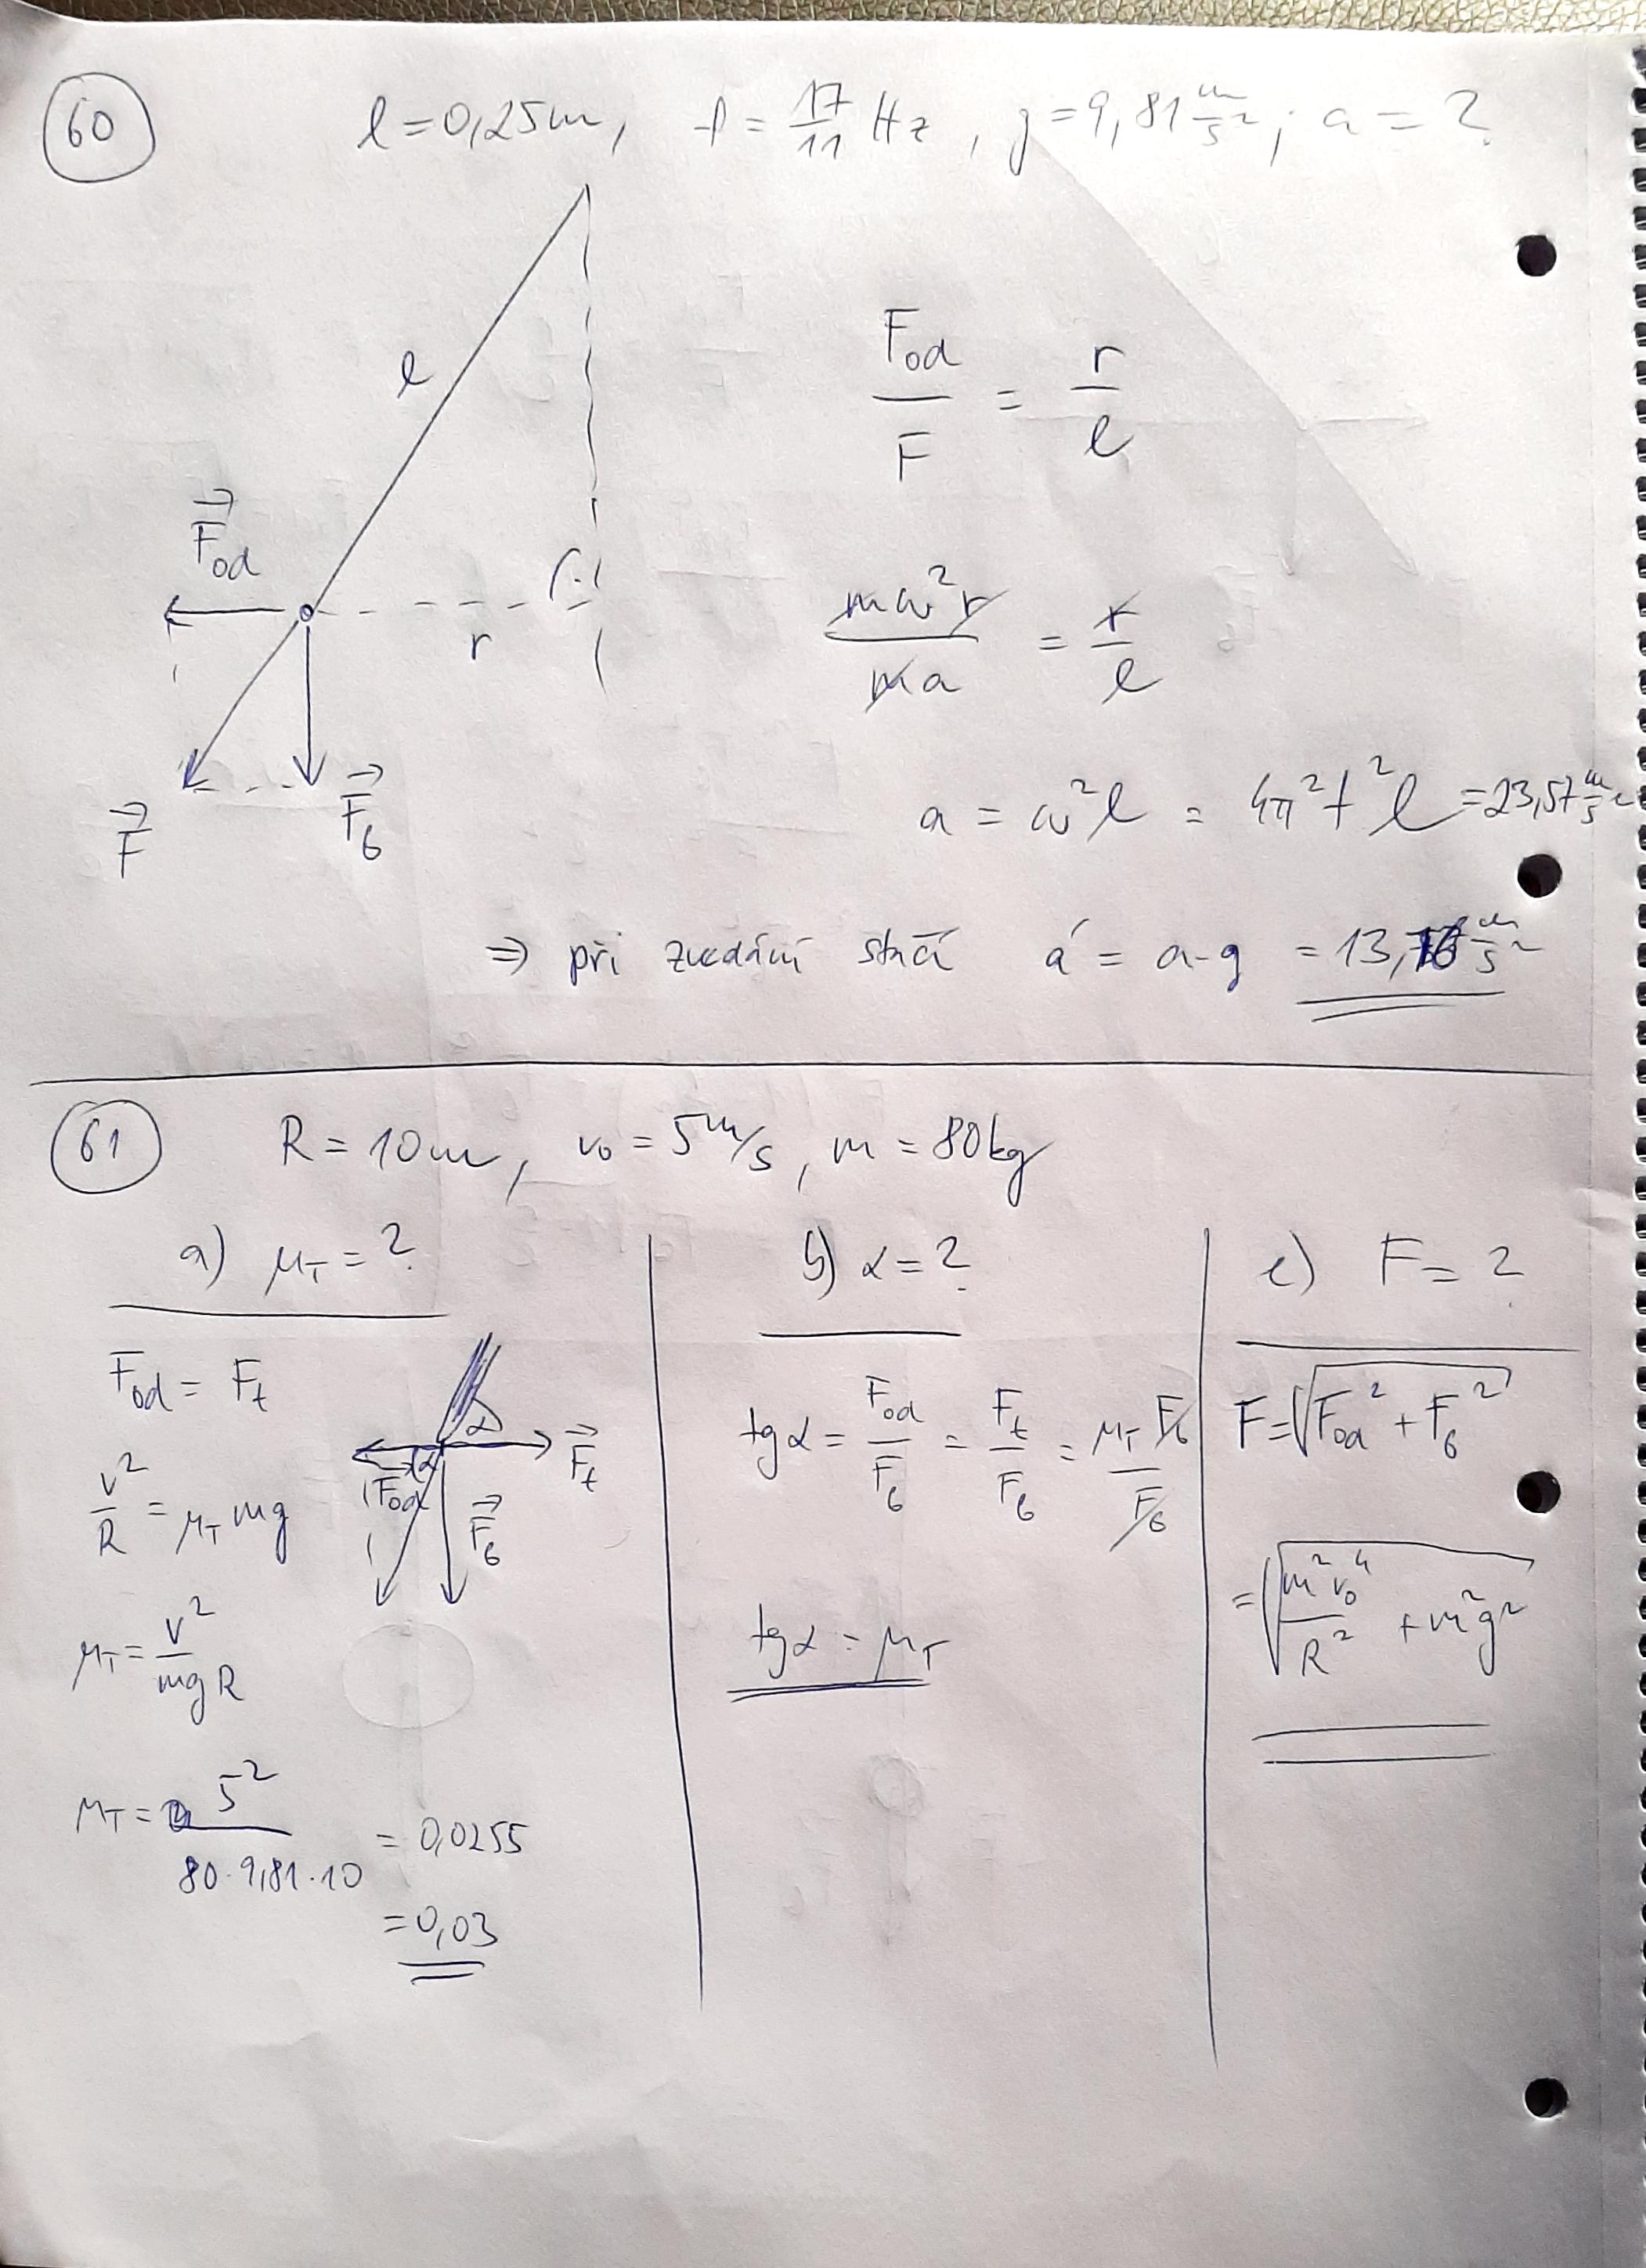 60 l = 0,25m, f = 17/11 Hz, g = 9,81 m/s²; a = ?
l
F_od / F = r / l
F_od
r
mω²r / ma = r / l
F
F_G
a = ω²l = 4π²f²l = 23,57 m/s²
⇒ při zvedání stačí a' = a-g = 13,76 m/s²
61 R = 10m, v₀ = 5 m/s, m = 80kg
a) μ_T = ?
F_od = F_t
α
F_t
α
F_od
F_G
v²/R = μ_T mg
μ_T = v²/mgR
μ_T = 5²/80·9,81·10 = 0,0255
= 0,03
b) α = ?
tgα = F_od/F_G = F_t/F_G = μ_T F_G/F_G
tgα = μ_T
c) F = ?
F = √(F_od² + F_G²)
= √(m²v₀⁴/R² + m²g²)